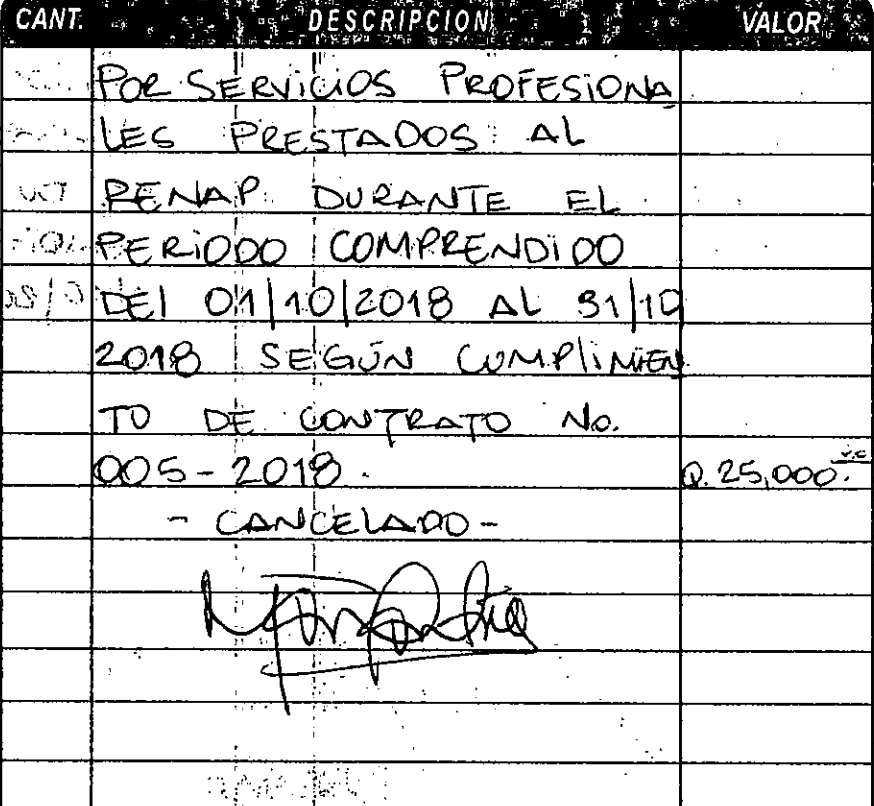 CANT. DESCRIPCION VALOR
POR SERVICIOS PROFESIONA
LES PRESTADOS AL
RENAP DURANTE EL
PERIODO COMPRENDIDO
DEl 01/10/2018 AL 31/10
2018 SEGÚN CUMPlIMIEN
TO DE CONTRATO No.
005-2018. Q. 25,000.
- CANCELADO -